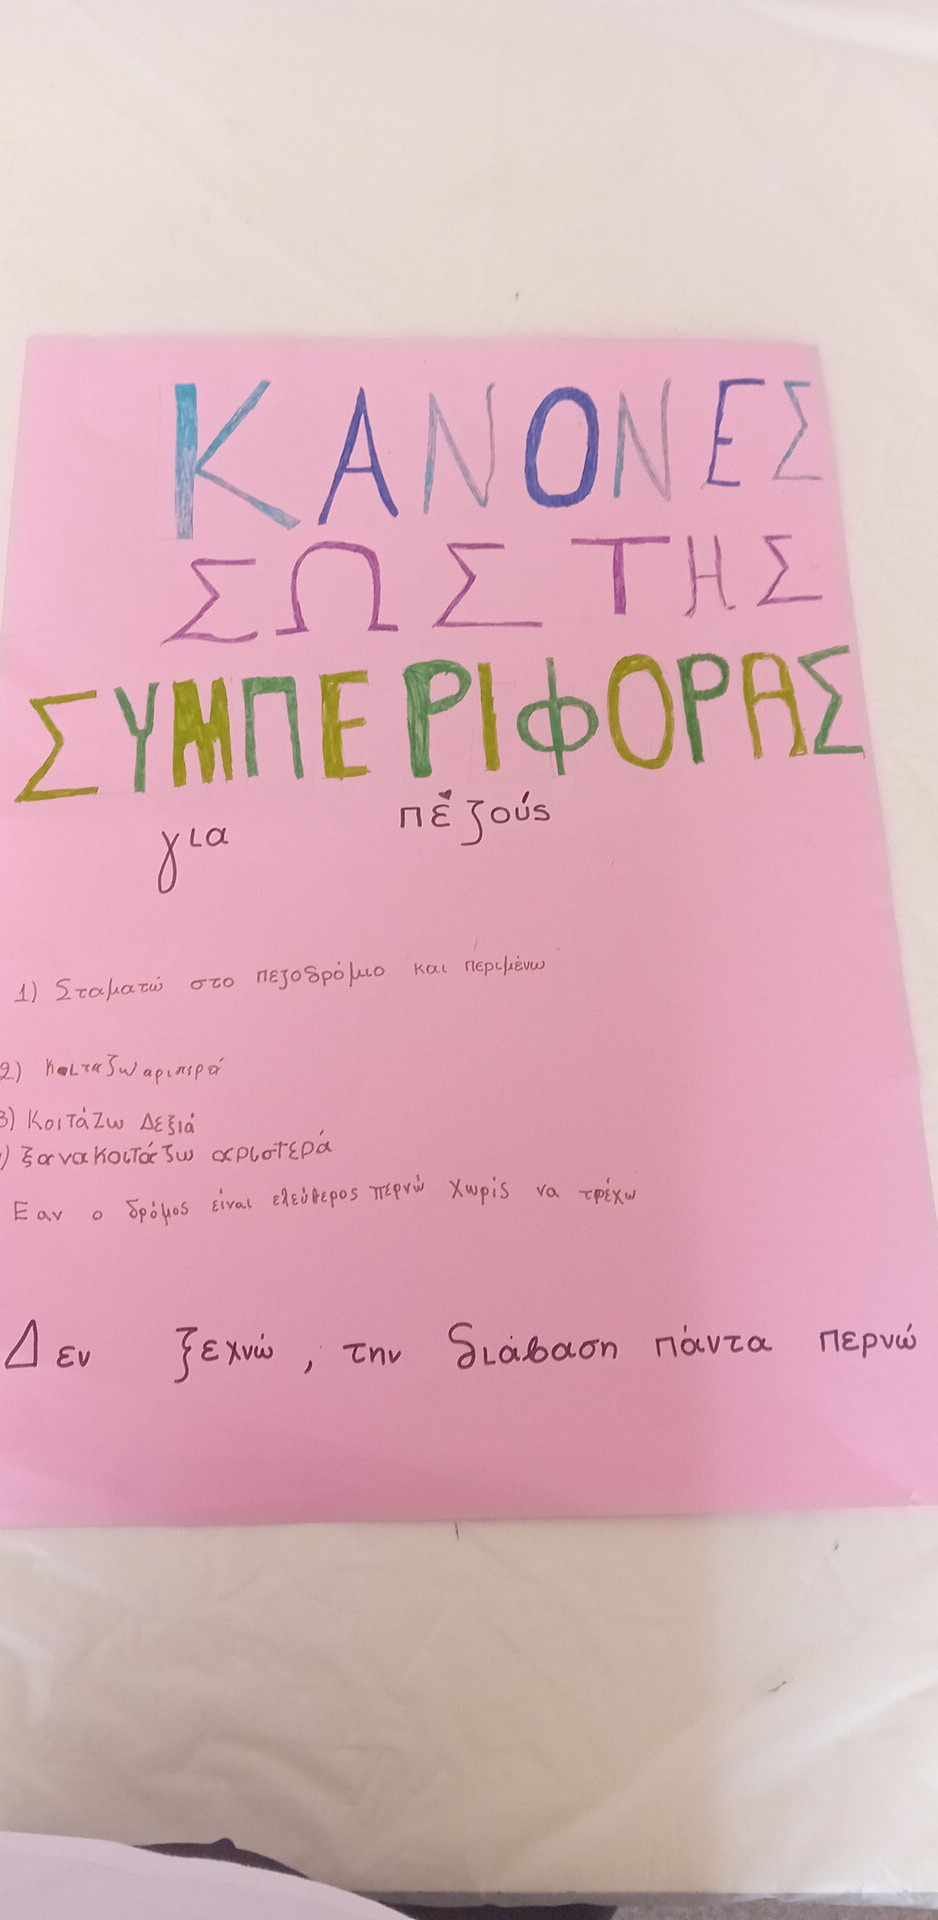 ΚΑΝΟΝΕΣ
ΣΩΣΤΗΣ
ΣΥΜΠΕΡΙΦΟΡΑΣ
για πέζούς
1) Σταματώ στο πεζοδρόμιο και περιμένω
2) Κοιταζω αριπερά
3) Κοιτάζω Δεξιά
) ξανακοιτάζω αριστερά
Εαν ο δρόμος είναι ελεύθερος περνώ χωρίς να τρέχω
Δεν ξεχνώ, την διάβαση πάντα περνώ